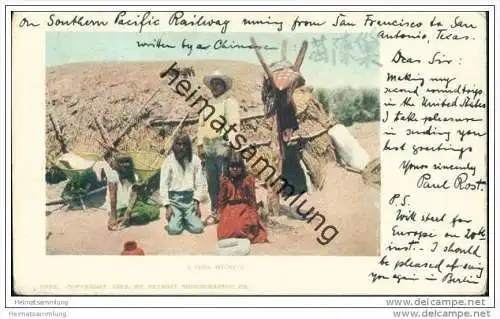 On Southern Pacific Railway running from San Francisco to San
Antonio, Texas.
written by a Chinese
Dear Sir:
Making my
second roundtrip
in the United States
I take pleasure
in sending you
best greetings
Yours sincerely
Paul Rost.
P.S.
Will start for
Europe on 20th
inst. - I should
be pleased of seeing
you again in Berlin
A YUMA
COPYRIGHT, BY DETROIT PHOTOGRAPHIC CO.
heimatsammlung.de
© Heimatsammlung.de
www.heimatsammlung.de